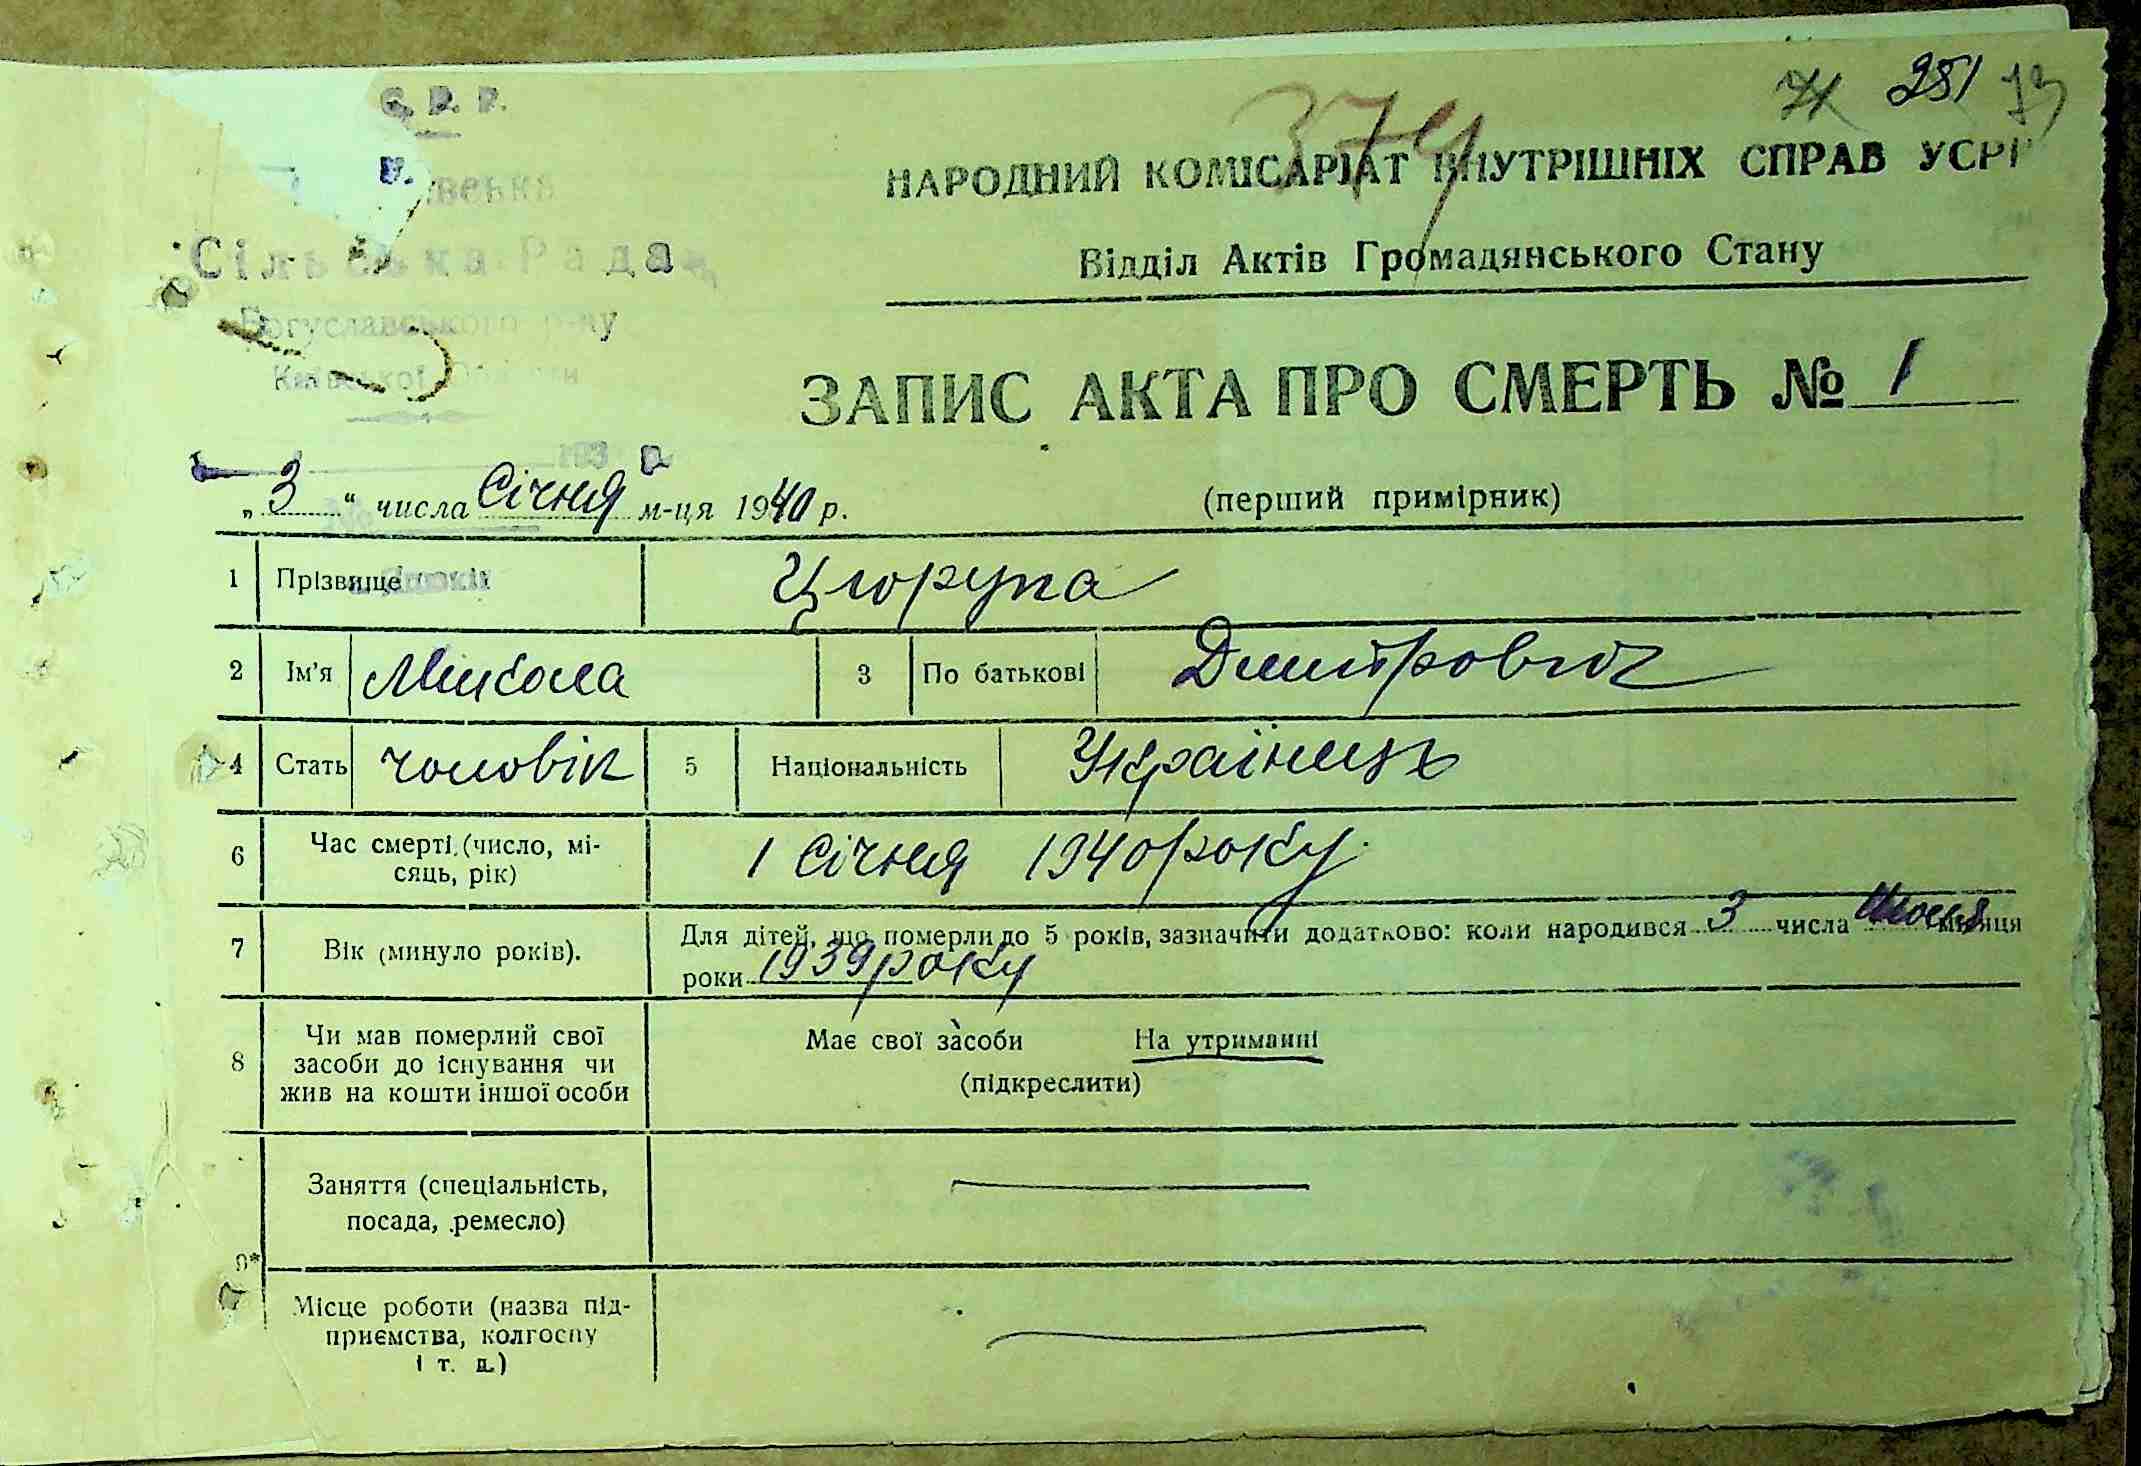 С. Р. Р.
Сільська Рада
Богуславського р-ну
Київської Області
251
379
НАРОДНИЙ КОМІСАРІАТ ВНУТРІШНІХ СПРАВ УСРР
Відділ Актів Громадянського Стану
ЗАПИС АКТА ПРО СМЕРТЬ № 1
193 р.
„ 3 “ числа Січня м-ця 1940 р. (перший примірник)
1 Прізвище Цюрупа
2 Ім'я Микола 3 По батькові Дмитрович
4 Стать чоловік 5 Національність Українець
6 Час смерті (число, мі-
сяць, рік) 1 Січня 1940 року.
7 Вік (минуло років). Для дітей, що померли до 5 років, зазначити додатково: коли народився 3 числа місяця
роки 1939 року
8 Чи мав померлий свої
засоби до існування чи
жив на кошти іншої особи
Має свої засоби На утриманні
(підкреслити)
9* Заняття (спеціальність,
посада, ремесло)
Місце роботи (назва під-
приємства, колгоспу
і т. д.)